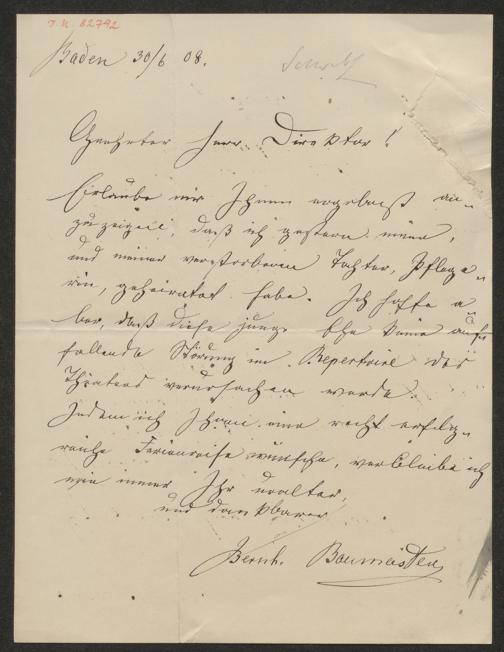 I.N. 82792
Baden 30/6 08.
Geehrter Herr Direktor!
Erlaube mir Ihnen ergebenst an-
zuzeigen, daß ich gestern meine,
und meiner verstorbenen Tochter, Pflege-
rin, geheiratet habe. Ich hoffe a
ber, daß diese junge Ehe keine auf-
fallende Störung im Repertoire des
Theaters verursachen werde.
Indem ich Ihnen eine recht erfolg-
reiche Ferienreise wünsche, verbleibe ich
wie immer Ihr uralter,
und dankbarer
Bernh. Baumeister